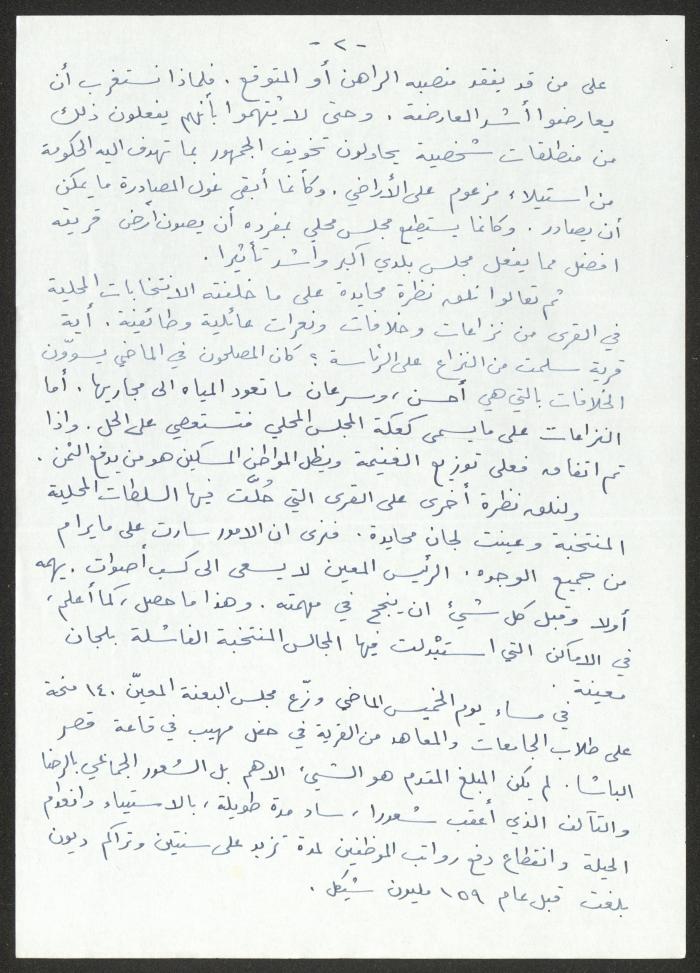 - ٢ -
على من قد يفقد منصبه الراهن أو المتوقع. فلماذا نستغرب أن
يعارضوا أشد المعارضة. وحتى لا يُتهموا بأنهم يفعلون ذلك
من منطلقات شخصية يحاولون تخويف الجمهور بما تهدف اليه الحكومة
من استيلاء مزعوم على الأراضي. وكأنما أبقى غول المصادرة ما يمكن
أن يصادر. وكانما يستطيع مجلس محلي بمفرده أن يصون أرض قريته
افضل مما يفعل مجلس بلدي أكبر وأشد تأثيرا.
ثم تعالوا نلقه نظرة محايدة على ما خلفته الانتخابات المحلية
في القرى من نزاعات وخلافات ونعرات عائلية وطائفية. أية
قرية سلمت من النزاع على الرئاسة؟ كان المصلحون في الماضي يسوّون
الخلافات بالتي هي أحسن، وسرعان ما تعود المياه الى مجاريها. أما
النزاعات على ما يسمى كعكة المجلس المحلي فتستعصي على الحل. واذا
تم اتفاق فعلى توزيع الغنيمة ويظل المواطن المسكين هو من يدفع الثمن.
ولنلقه نظرة أخرى على القرى التي حُلَّت فيها السلطات المحلية
المنتخبة وعينت لجان محايدة. فنرى ان الامور سارت على ما يرام
من جميع الوجوه. الرئيس المعين لا يسعى الى كسب أصوات. يهمه
أولا وقبل كل شيء ان ينجح في مهمته. وهذا ما حصل، كما أعلم،
في الاماكن التي استبْدلت فيها المجالس المنتخبة الفاشلة بلجان
معينة.
في مساء يوم الخميس الماضي وزّع مجلس البقعة المعيّن ١٤٠ منحة
على طلاب الجامعات والمعاهد من القرية في حفل مهيب في قاعة قصر
الباشا. لم يكن المبلغ المقدم هو الشيء الاهم بل الشعور الجماعي بالرضا
والتآلف الذي أعقب شعورا، ساد مدة طويلة، بالاستياء وانعدام
الحيلة وانقطاع دفع رواتب الموظفين لمدة تزيد على سنتين وتراكم ديون
بلغت قبل عام ١٥٩ مليون شيكل.